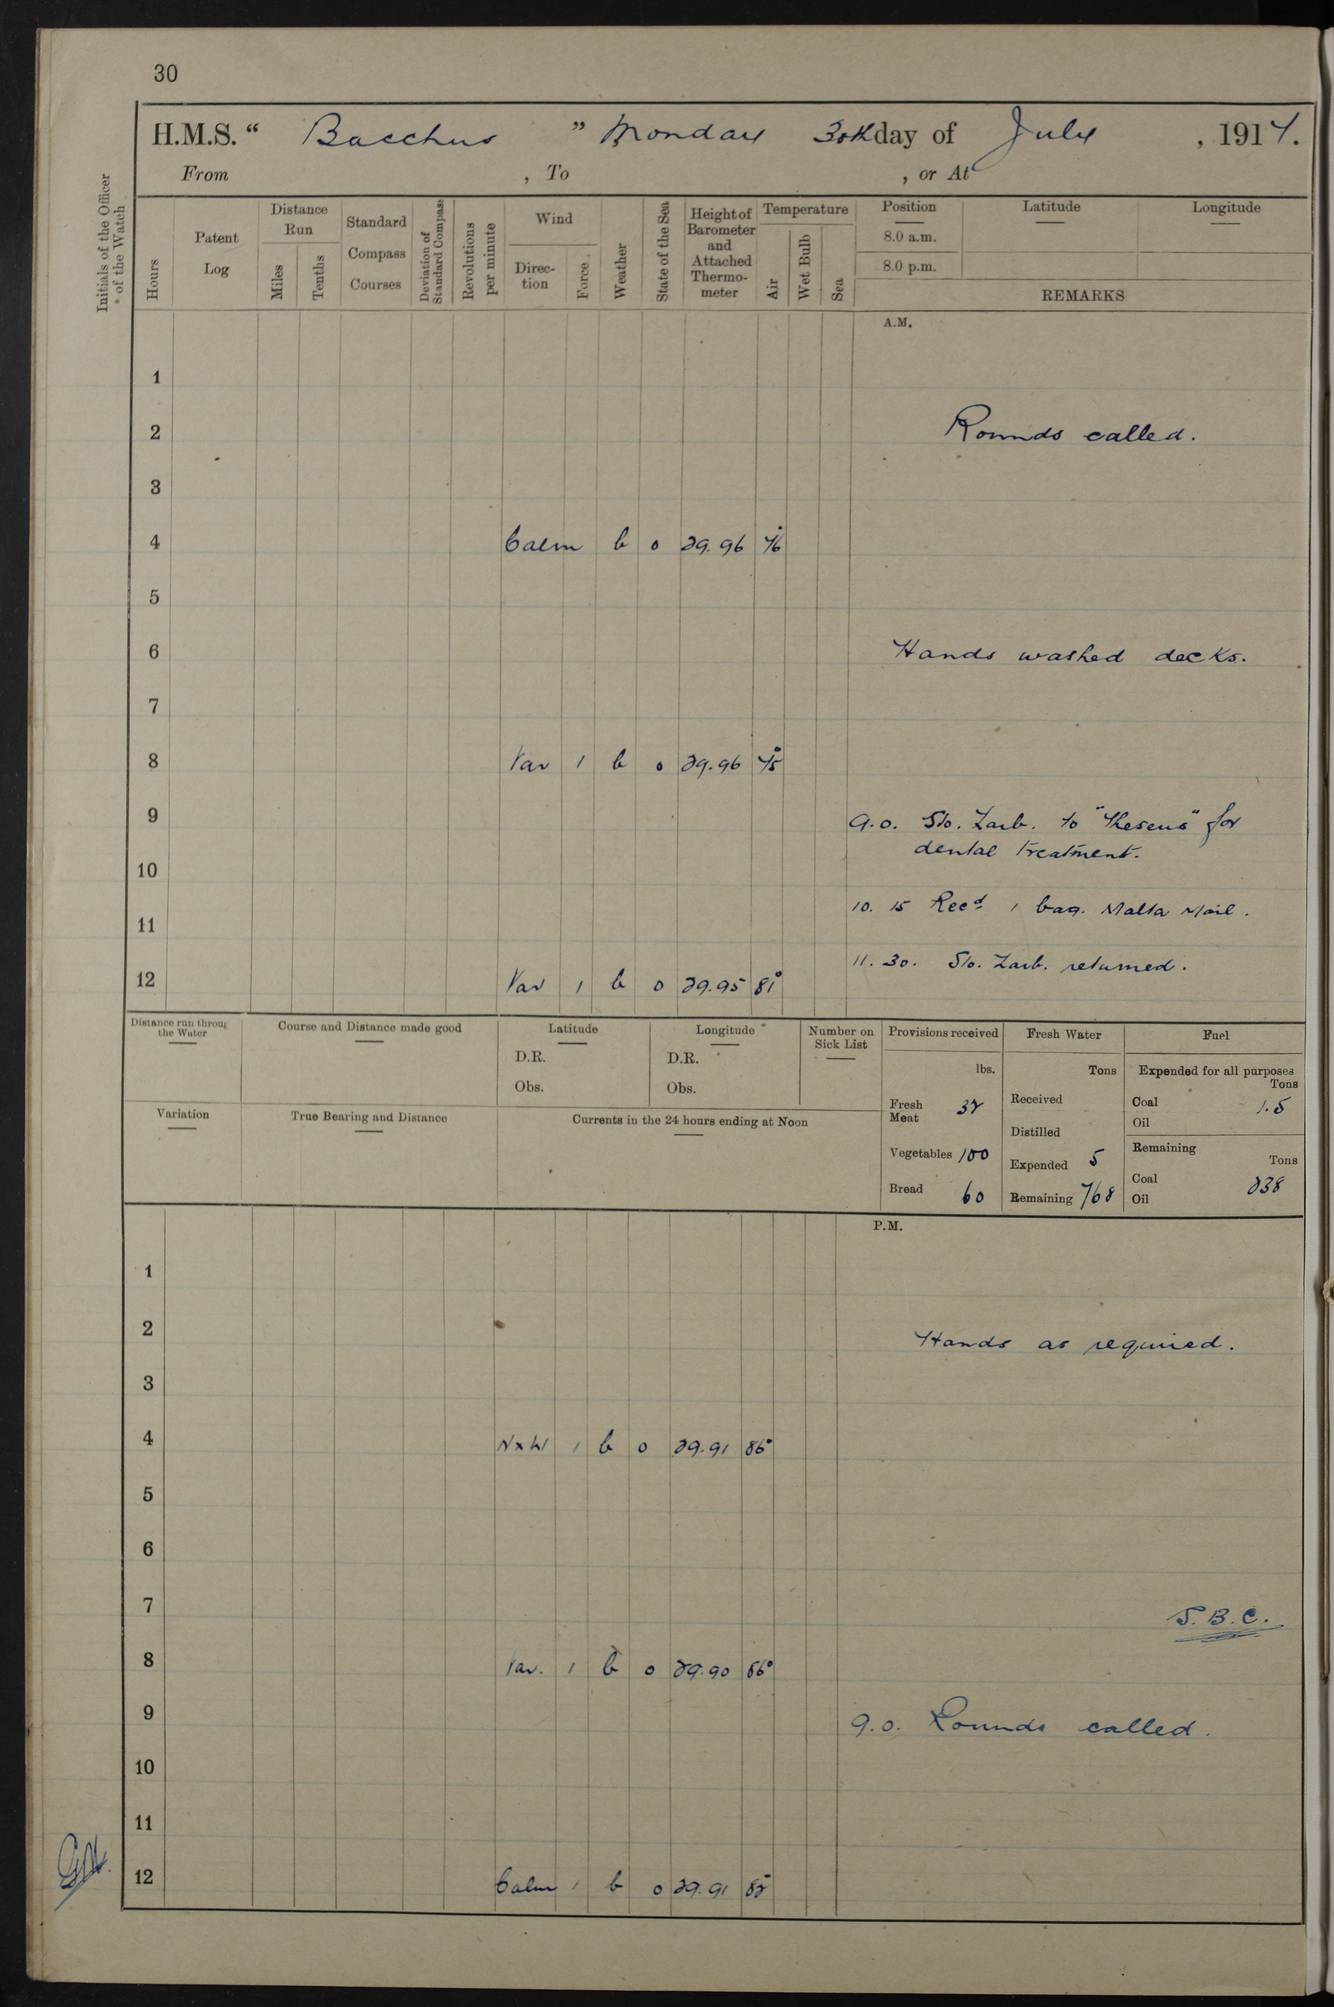 30
H.M.S. “ Bacchus ” Monday 30th day of July , 1917.
From , To , or At
Initials of the Officer of the Watch
Hours
Patent Log
Distance Run
Miles
Tenths
Standard Compass Courses
Deviation of Standard Compass
Revolutions per minute
Wind
Direc-tion
Force
Weather
State of the Sea
Height of Barometer and Attached Thermo-meter
Temperature
Air
Wet Bulb
Sea
Position Latitude Longitude
8.0 a.m.
8.0 p.m.
REMARKS
A.M.
1
2 Rounds called.
3
4 Calm b 0 29.96 76°
5
6 Hands washed decks.
7
8 Var 1 b 0 29.96 75°
9 9.0. Sto. Zarb. to "Theseus" for
dental treatment.
10
10. 15 Recd 1 bag. Malta Mail.
11
11. 30. Sto. Zarb. returned.
12 Var 1 b 0 29.95 81°
Distance run through the Water
Course and Distance made good
Latitude
D.R.
Obs.
Longitude
D.R.
Obs.
Number on Sick List
Provisions received
lbs.
Fresh Meat 32
Vegetables 100
Bread 60
Fresh Water
Tons
Received
Distilled
Expended 5
Remaining 768
Fuel
Expended for all purposes
Tons
Coal 1.5
Oil
Remaining
Tons
Coal 238
Oil
Variation
True Bearing and Distance
Currents in the 24 hours ending at Noon
P.M.
1
2 Hands as required.
3
4 NxW 1 b 0 29.91 86°
5
6
7 S.B.C.
8 Var. 1 b 0 29.90 86°
9 9.0. Rounds called.
10
11
12 Calm 1 b 0 29.91 82°